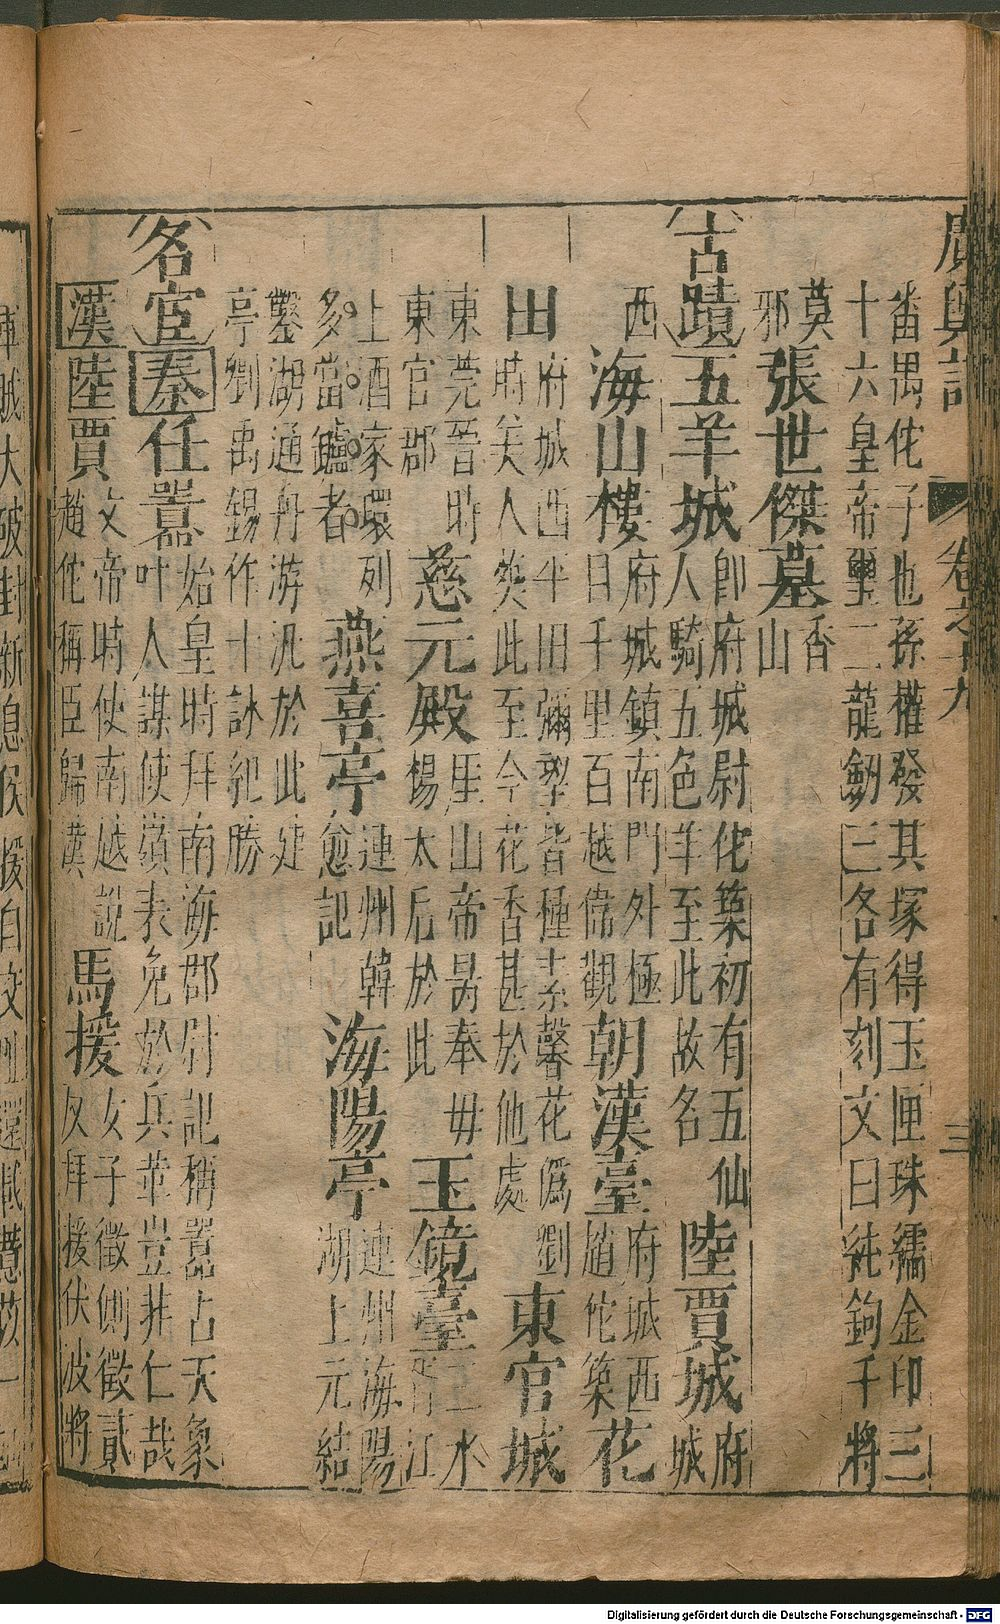 廣輿記 卷之十九 三
番禺佗子也孫權發其塚得玉匣珠繻金印三
十六皇帝璽二龍劔三各有刻文曰純鉤千將
莫
邪
張世傑墓
香
山
古蹟
五羊城
即府城尉佗築初有五仙
人騎五色羊至此故名
陸賈城
府
城
西
海山樓
府城鎮南門外極
目千里百越偉觀
朝漢臺
府城西
趙佗築
花
田
府城西平旧彌望皆種素馨花偽劉
時美人葬此至今花香甚於他處
東官城
東莞晉時
東官郡
慈元殿
厓山帝昺奉毋
楊太后於此
玉鏡臺
江
上酒家環列
多當鑪者
燕喜亭
連州韓
愈記
海陽亭
連州海陽
湖上元結
鑿湖通舟游汎於此建
亭劉禹錫作十詠紀勝
名宦
秦
任囂
始皇時拜南海郡尉記稱囂占天象
叶人謀使嶺表免於兵革豈非仁哉
漢
陸賈
文帝時使南越說
趙佗稱臣歸漢
馬援
女子徵側徵貳
反拜援伏波將
Digitalisierung gefördert durch die Deutsche Forschungsgemeinschaft - DFG